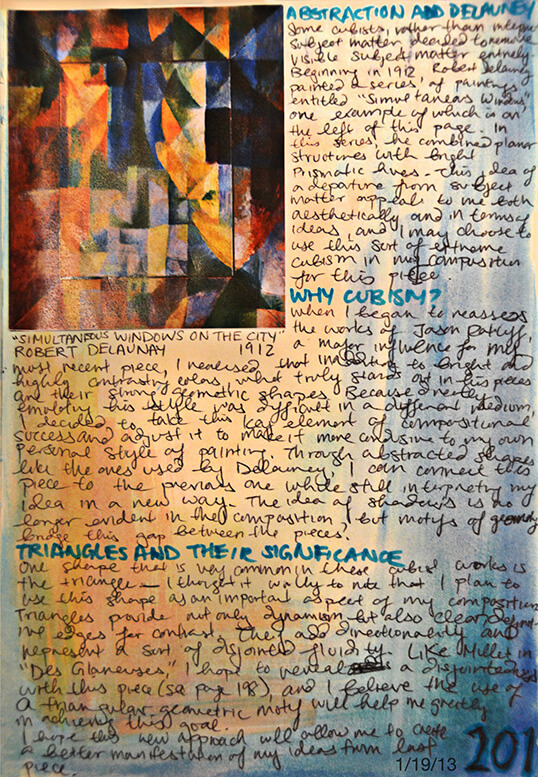 ABSTRACTION AND DELAUNEY
Some cubists, rather than
subject matter decided to remove
visible subject matter entirely.
Beginning in 1912, Robert Delauney
painted a series of paintings
entitled "Simultaneous Windows"
one example of which is on
the left of this page. In
this series, he combined planar
structures with bright
Prismatic hues. This idea of
a departure from subject
matter appeals to me both
aesthetically and in terms of
ideas, and I may choose to
use this sort of extreme
cubism in my composition
for this piece.
WHY CUBISM?
When I began to reassess
the works of Jason
"SIMULTANEOUS WINDOWS ON THE CITY"
a major influence for my
ROBERT DELAUNAY 1912
most recent piece, I realized that in addition to bright and
highly contrasting colors, what truly stands out in his pieces
are their strong geometric shapes. Because directly
employing this style was difficult in a different medium,
I decided to take this key element of compositional
success and adjust it to make it more conducive to my own
personal style of painting. Through abstracted shapes
like the ones used by Delauney, I can connect this
piece to the previous one while still interpreting my
idea in a new way. The idea of shadows is no
longer evident in the composition, but motifs of geometry
bridge this gap between the pieces.
TRIANGLES AND THEIR SIGNIFICANCE
One shape that is very common in these cubist works is
the triangle— I thought it worthy to note that I plan to
use this shape as an important aspect of my composition.
Triangles provide not only dynamism but also clear
edges for contrast. They add directionality and
represent a sort of disjointed fluidity. Like Millet in
"Des Glaneuses," I hope to reveal a disjointedness
with this piece (see page 198), and I believe the use of
a triangular geometric motif will help me greatly
in achieving this goal.
I hope this new approach will allow me to create
a better manifestation of my ideas from last
piece.
1/19/13
201